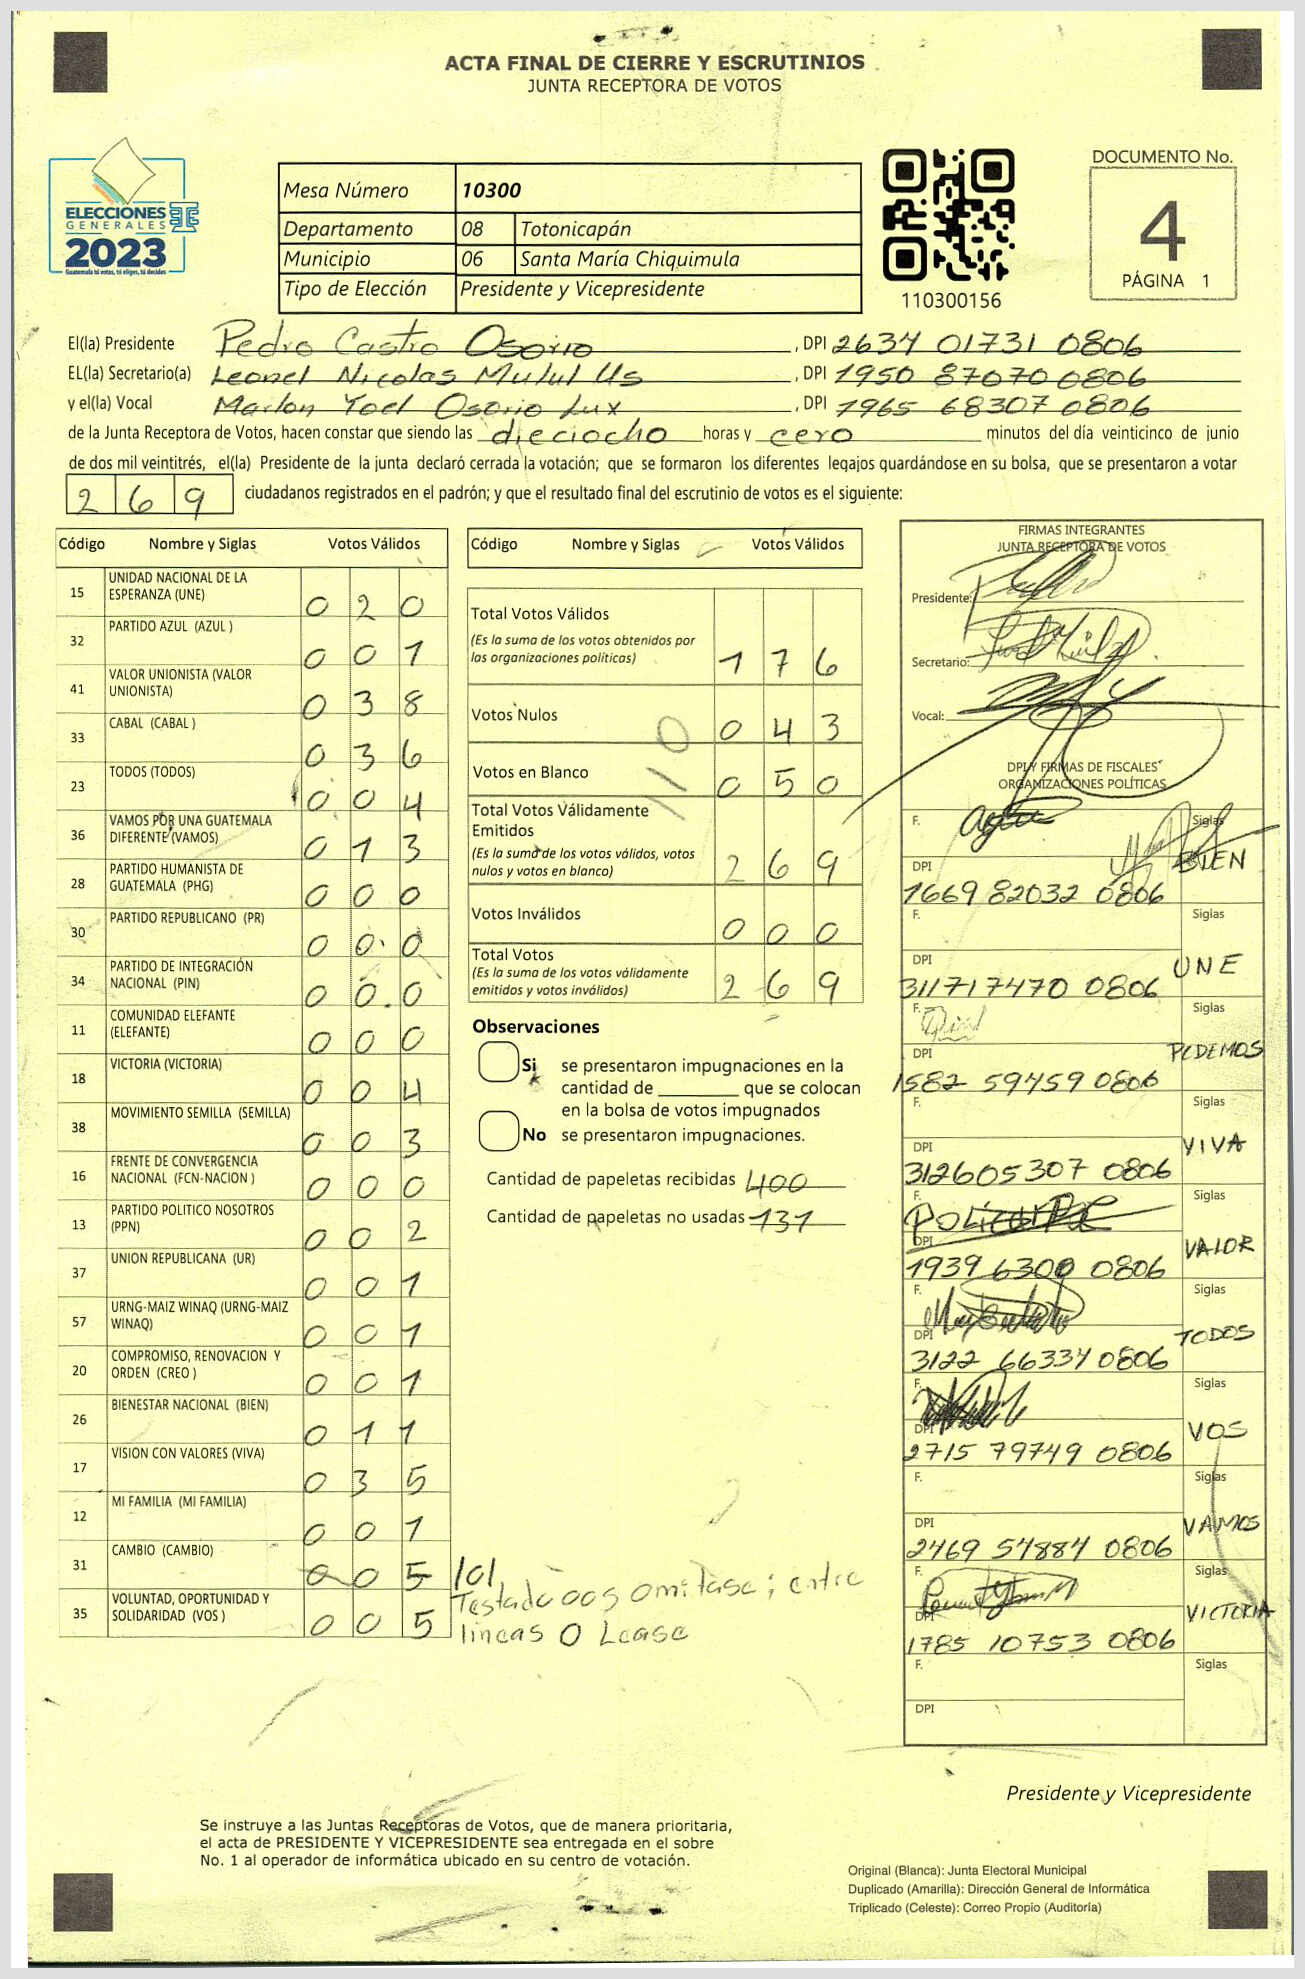 ACTA FINAL DE CIERRE Y ESCRUTINIOS
JUNTA RECEPTORA DE VOTOS
ELECCIONES
GENERALES
2023
Guatemala tú votas, tú eliges, tú decides
Mesa Número 10300
Departamento 08 Totonicapán
Municipio 06 Santa María Chiquimula
Tipo de Elección Presidente y Vicepresidente
110300156
DOCUMENTO No.
4
PÁGINA 1
El(la) Presidente Pedro Castro Osorio, DPI 2634 01731 0806
EL(la) Secretario(a) Leonel Nicolas Mulul Us, DPI 1950 87070 0806
y el(la) Vocal Marlon Yoel Osorio Lux, DPI 1965 68307 0806
de la Junta Receptora de Votos, hacen constar que siendo las dieciocho horas y cero minutos del día veinticinco de junio
de dos mil veintitrés, el(la) Presidente de la junta declaró cerrada la votación; que se formaron los diferentes legajos guardándose en su bolsa, que se presentaron a votar
269 ciudadanos registrados en el padrón; y que el resultado final del escrutinio de votos es el siguiente:
Código Nombre y Siglas Votos Válidos
15 UNIDAD NACIONAL DE LA ESPERANZA (UNE) 020
32 PARTIDO AZUL (AZUL ) 001
41 VALOR UNIONISTA (VALOR UNIONISTA) 038
33 CABAL (CABAL ) 036
23 TODOS (TODOS) 004
36 VAMOS POR UNA GUATEMALA DIFERENTE (VAMOS) 013
28 PARTIDO HUMANISTA DE GUATEMALA (PHG) 000
30 PARTIDO REPUBLICANO (PR) 000
34 PARTIDO DE INTEGRACIÓN NACIONAL (PIN) 000
11 COMUNIDAD ELEFANTE (ELEFANTE) 000
18 VICTORIA (VICTORIA) 004
38 MOVIMIENTO SEMILLA (SEMILLA) 003
16 FRENTE DE CONVERGENCIA NACIONAL (FCN-NACION ) 000
13 PARTIDO POLITICO NOSOTROS (PPN) 002
37 UNION REPUBLICANA (UR) 001
57 URNG-MAIZ WINAQ (URNG-MAIZ WINAQ) 001
20 COMPROMISO, RENOVACION Y ORDEN (CREO ) 001
26 BIENESTAR NACIONAL (BIEN) 011
17 VISION CON VALORES (VIVA) 035
12 MI FAMILIA (MI FAMILIA) 001
31 CAMBIO (CAMBIO) 005 101
35 VOLUNTAD, OPORTUNIDAD Y SOLIDARIDAD (VOS ) 005
Testado 005 omitase; entre
lineas 0 Lease
Código Nombre y Siglas Votos Válidos
Total Votos Válidos
(Es la suma de los votos obtenidos por
las organizaciones políticas) 176
Votos Nulos 043
Votos en Blanco 050
110
Total Votos Válidamente
Emitidos
(Es la suma de los votos válidos, votos
nulos y votos en blanco) 269
Votos Inválidos 000
Total Votos
(Es la suma de los votos válidamente
emitidos y votos inválidos) 269
Observaciones
Si se presentaron impugnaciones en la
cantidad de ________ que se colocan
en la bolsa de votos impugnados
No se presentaron impugnaciones.
Cantidad de papeletas recibidas 400
Cantidad de papeletas no usadas 131
FIRMAS INTEGRANTES
JUNTA RECEPTORA DE VOTOS
Presidente:
Secretario:
Vocal:
DPI Y FIRMAS DE FISCALES
ORGANIZACIONES POLÍTICAS
F. Siglas
DPI BIEN
1669 82032 0806
F. Siglas
DPI UNE
3117 17470 0806
F. Siglas
DPI PODEMOS
1582 59459 0806
F. Siglas
DPI VIVA
3126 05307 0806
F. Siglas
DPI VALOR
1939 6300 0806
F. Siglas
DPI TODOS
3122 66334 0806
F. Siglas
DPI VOS
2715 79749 0806
F. Siglas
DPI VAMOS
2469 54884 0806
F. Siglas
DPI VICTORIA
1785 10753 0806
F. Siglas
DPI
Presidente y Vicepresidente
Se instruye a las Juntas Receptoras de Votos, que de manera prioritaria,
el acta de PRESIDENTE Y VICEPRESIDENTE sea entregada en el sobre
No. 1 al operador de informática ubicado en su centro de votación.
Original (Blanca): Junta Electoral Municipal
Duplicado (Amarilla): Dirección General de Informática
Triplicado (Celeste): Correo Propio (Auditoría)